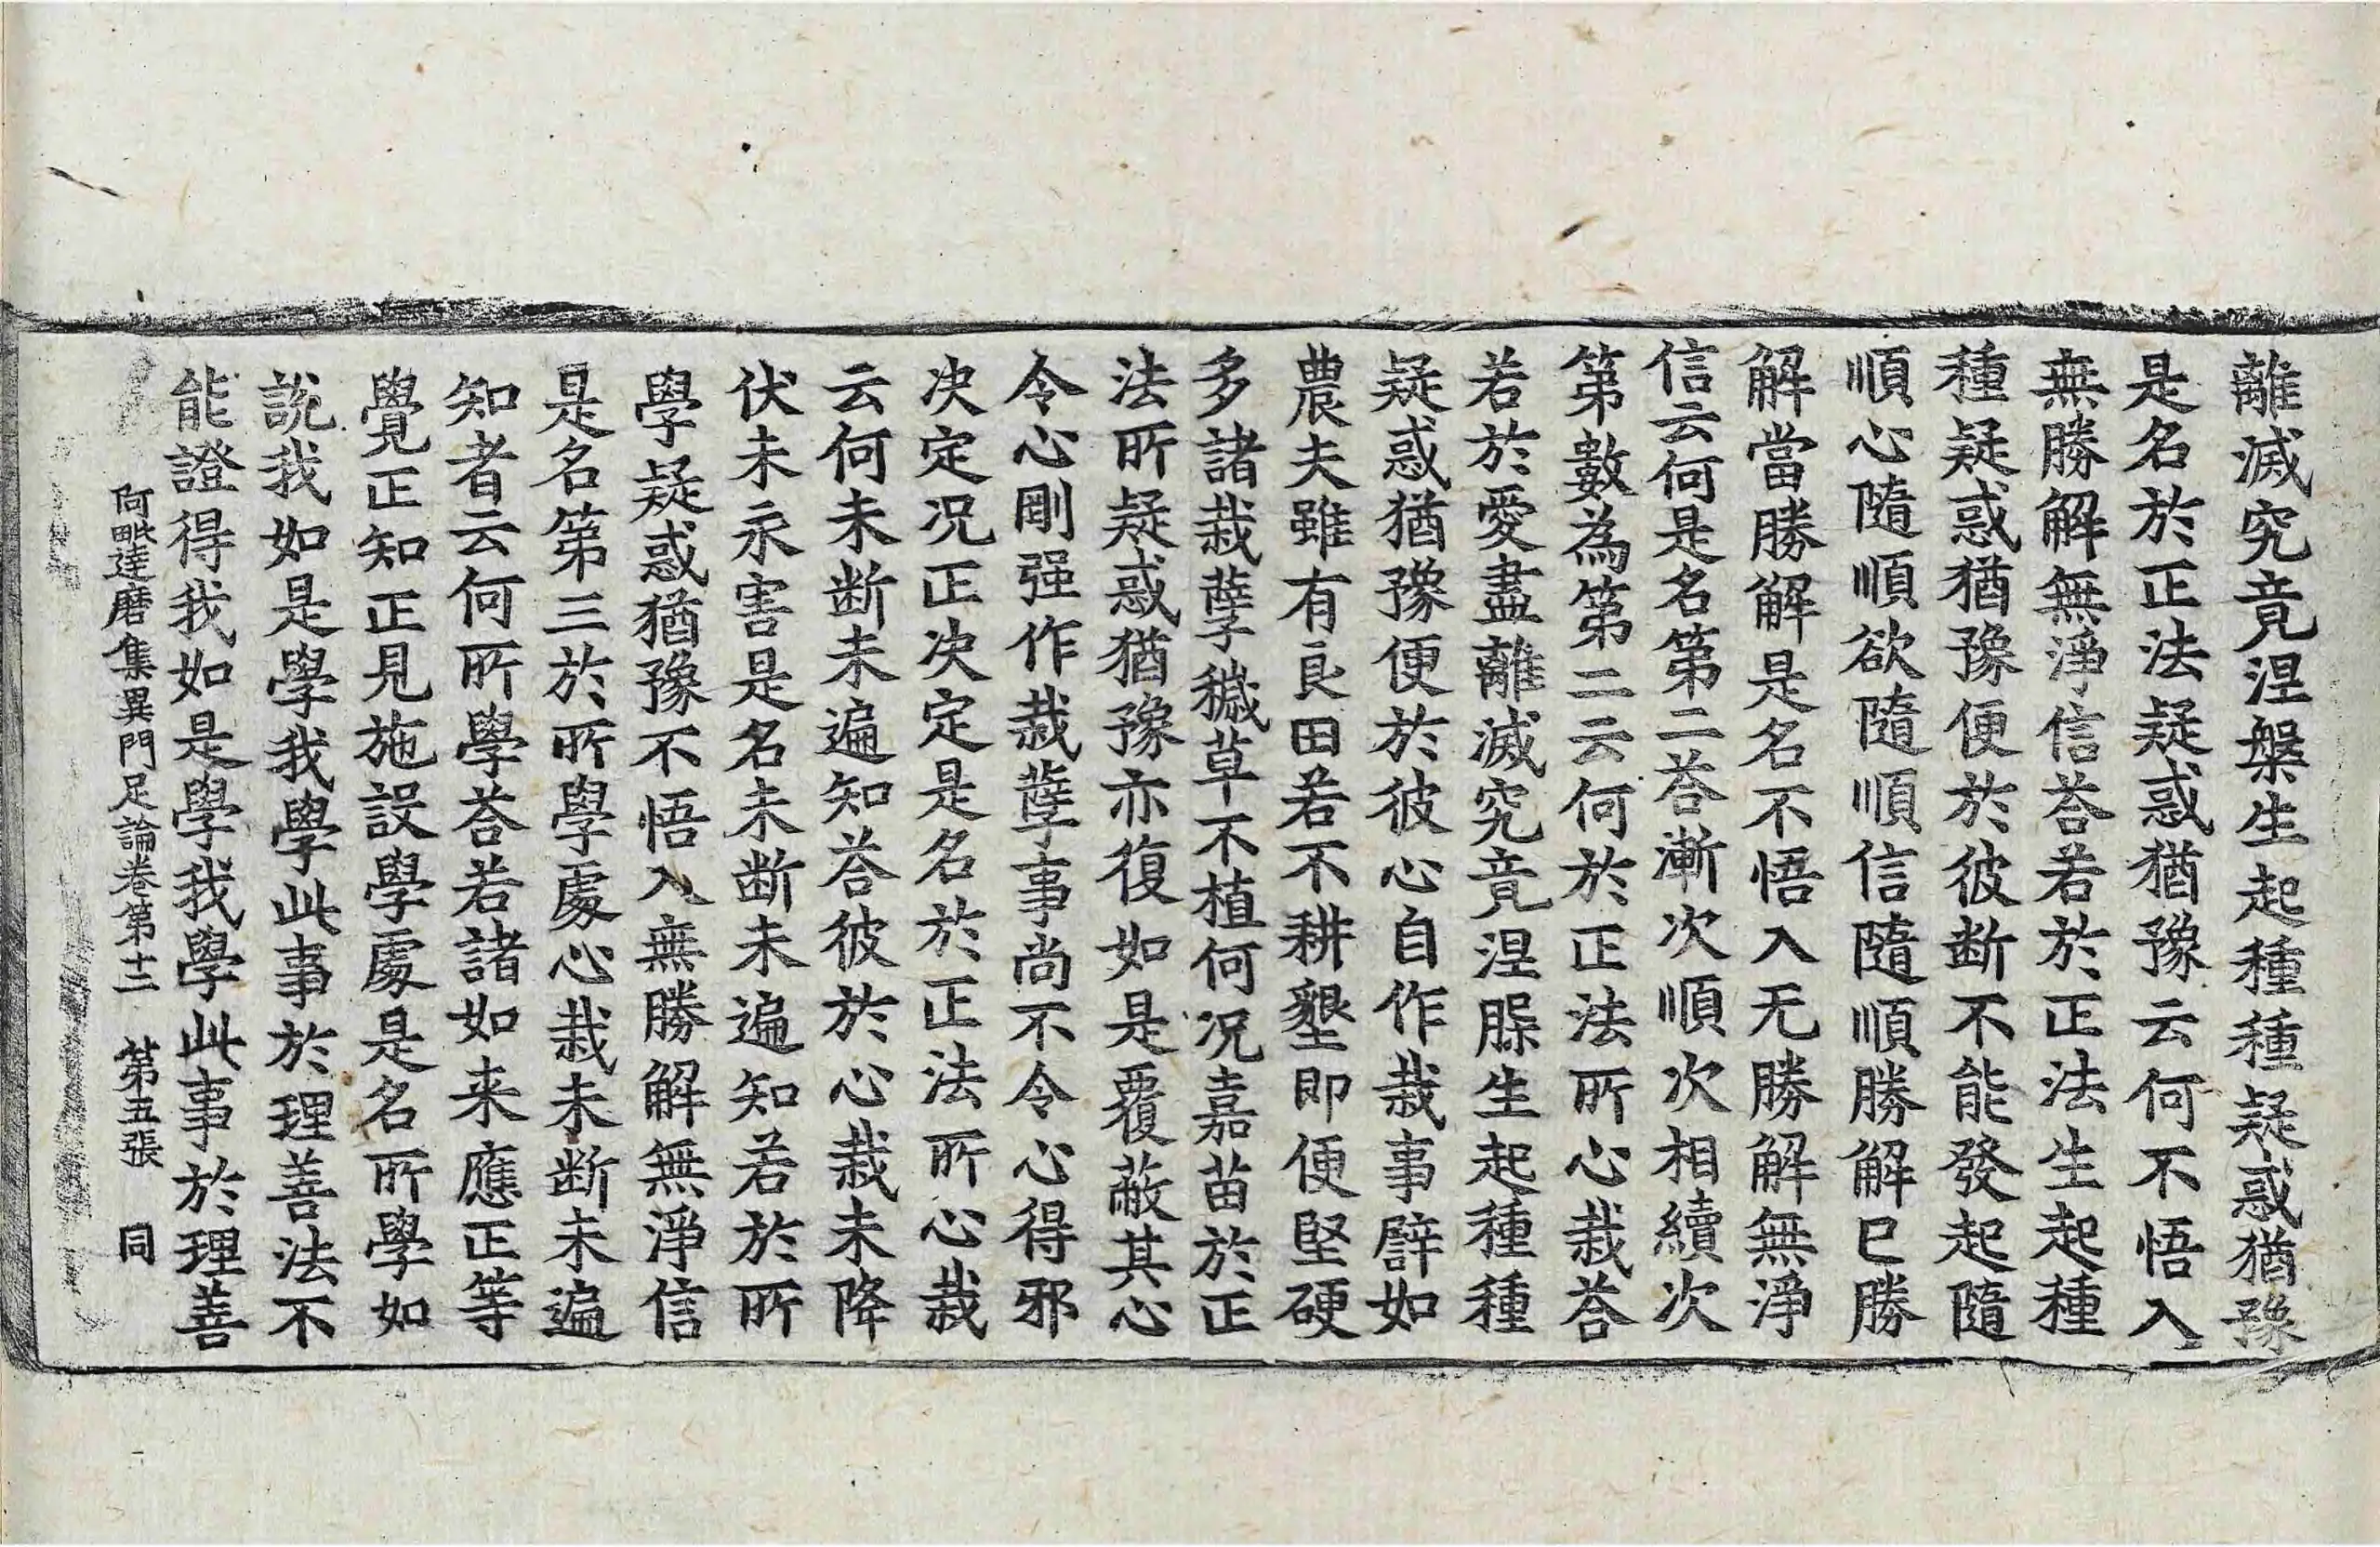 離滅究竟涅槃生起種種疑惑猶豫
是名於正法疑惑猶豫云何不悟入
無勝解無淨信荅若於正法生起種
種疑惑猶豫便於彼断不能發起隨
順心隨順欲隨順信隨順勝解已勝
解當勝解是名不悟入无勝解無淨
信云何是名第二荅漸次順次相續次
第數為第二云何於正法所心栽荅
若於愛盡離滅究竟涅槃生起種種
疑惑猶豫便於彼心自作栽事譬如
農夫雖有良田若不耕墾即便堅硬
多諸栽孽穢草不植何况嘉苗於正
法所疑惑猶豫亦復如是覆蔽其心
令心剛强作栽孽事尚不令心得邪
决定况正决定是名於正法所心栽
云何未断未遍知荅彼於心栽未降
伏未永害是名未断未遍知若於所
學疑惑猶豫不悟入無勝解無淨信
是名第三於所學處心栽未断未遍
知者云何所學荅若諸如来應正等
覺正知正見施設學處是名所學如
說我如是學我學此事於理善法不
能證得我如是學我學此事於理善
阿毗達磨集異門足論卷第十二 第五張 同